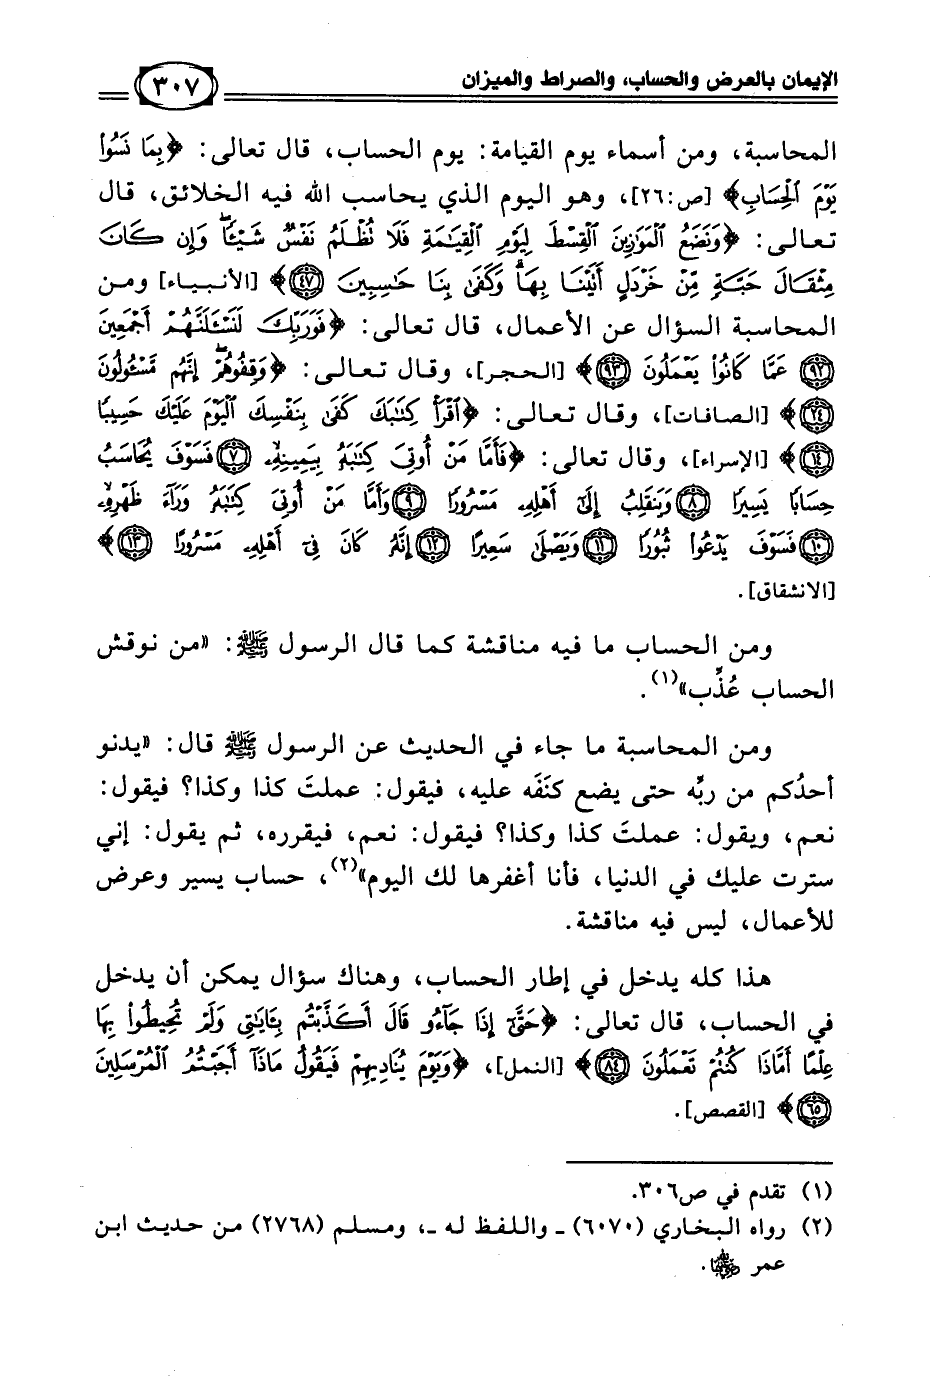 الإيمان بالعرض والحساب، والصراط والميزان ٣٠٧
المحاسبة، ومن أسماء يوم القيامة: يوم الحساب، قال تعالى: ﴿بِمَا نَسُوا۟
يَوْمَ ٱلْحِسَابِ﴾ [ص:٢٦]، وهو اليوم الذي يحاسب الله فيه الخلائق، قال
تعالى: ﴿وَنَضَعُ ٱلْمَوَٰزِينَ ٱلْقِسْطَ لِيَوْمِ ٱلْقِيَٰمَةِ فَلَا تُظْلَمُ نَفْسٌ شَيْـًٔا ۖ وَإِن كَانَ
مِثْقَالَ حَبَّةٍ مِّنْ خَرْدَلٍ أَتَيْنَا بِهَا ۗ وَكَفَىٰ بِنَا حَٰسِبِينَ ٤٧﴾ [الأنبياء] ومن
المحاسبة السؤال عن الأعمال، قال تعالى: ﴿فَوَرَبِّكَ لَنَسْـَٔلَنَّهُمْ أَجْمَعِينَ
٩٢ عَمَّا كَانُوا۟ يَعْمَلُونَ ٩٣﴾ [الحجر]، وقال تعالى: ﴿وَقِفُوهُمْ ۖ إِنَّهُم مَّسْـُٔولُونَ
٢٤﴾ [الصافات]، وقال تعالى: ﴿ٱقْرَأْ كِتَٰبَكَ كَفَىٰ بِنَفْسِكَ ٱلْيَوْمَ عَلَيْكَ حَسِيبًا
١٤﴾ [الإسراء]، وقال تعالى: ﴿فَأَمَّا مَنْ أُوتِىَ كِتَٰبَهُۥ بِيَمِينِهِۦ ٧ فَسَوْفَ يُحَاسَبُ
حِسَابًا يَسِيرًا ٨ وَيَنقَلِبُ إِلَىٰٓ أَهْلِهِۦ مَسْرُورًا ٩ وَأَمَّا مَنْ أُوتِىَ كِتَٰبَهُۥ وَرَآءَ ظَهْرِهِۦ
١٠ فَسَوْفَ يَدْعُوا۟ ثُبُورًا ١١ وَيَصْلَىٰ سَعِيرًا ١٢ إِنَّهُۥ كَانَ فِىٓ أَهْلِهِۦ مَسْرُورًا ١٣﴾
[الانشقاق].
ومن الحساب ما فيه مناقشة كما قال الرسول ﷺ: «من نوقش
الحساب عُذِّب»(١).
ومن المحاسبة ما جاء في الحديث عن الرسول ﷺ قال: «يدنو
أحدُكم من ربِّه حتى يضع كنَفَه عليه، فيقول: عملتَ كذا وكذا؟ فيقول:
نعم، ويقول: عملتَ كذا وكذا؟ فيقول: نعم، فيقرره، ثم يقول: إني
سترت عليك في الدنيا، فأنا أغفرها لك اليوم»(٢)، حساب يسير وعرض
للأعمال، ليس فيه مناقشة.
هذا كله يدخل في إطار الحساب، وهناك سؤال يمكن أن يدخل
في الحساب، قال تعالى: ﴿حَتَّىٰٓ إِذَا جَآءُو قَالَ أَكَذَّبْتُم بِـَٔايَٰتِى وَلَمْ تُحِيطُوا۟ بِهَا
عِلْمًا أَمَّاذَا كُنتُمْ تَعْمَلُونَ ٨٤﴾ [النمل]، ﴿وَيَوْمَ يُنَادِيهِمْ فَيَقُولُ مَاذَآ أَجَبْتُمُ ٱلْمُرْسَلِينَ
٦٥﴾ [القصص].
(١) تقدم في ص٣٠٦.
(٢) رواه البخاري (٦٠٧٠) ـ واللفظ له ـ، ومسلم (٢٧٦٨) من حديث ابن
عمر رضي الله عنهما.